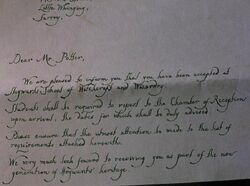 Little Whinging,
Surrey.
Dear Mr Potter,
We are pleased to inform you that you have been accepted at
Hogwarts School of Witchcraft and Wizardry.
Students shall be required to report to the Chamber of Reception
upon arrival, the dates for which shall be duly advised.
Please ensure that the utmost attention be made to the list of
requirements attached herewith.
We very much look forward to receiving you as part of the new
generation of Hogwarts' heritage.